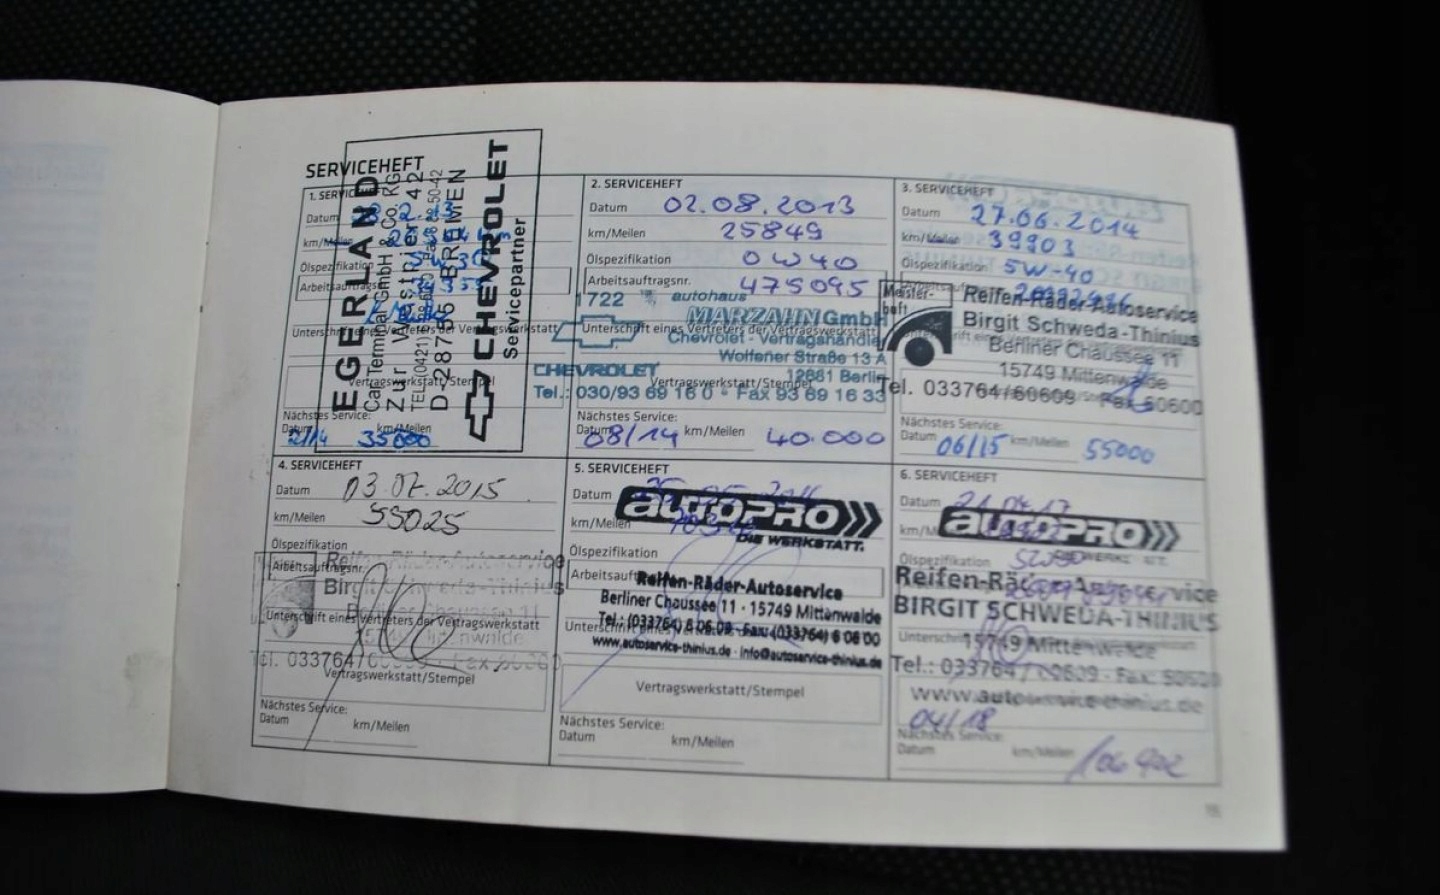 SERVICEHEFT
Datum
km/Meilen
Ölspezifikation
EGERLAND
Car Terminal GmbH & Co. KG
Zur Westpier 42
D-28755 BREMEN
CHEVROLET
Servicepartner
Vertragswerkstatt/Stempel
Nächstes Service:
Datum 2/14 km/Meilen 35000
2. SERVICEHEFT
Datum 02.08.2013
km/Meilen 25849
Ölspezifikation 0W40
Arbeitsauftragsnr. 475095
1722 autohaus
MARZAHN GmbH
Unterschrift eines Vertreters der Vertragswerkstatt
Chevrolet - Vertragshändler
Wolfener Straße 13 A
CHEVROLET 12681 Berlin
Vertragswerkstatt/Stempel
Tel.: 030/93 69 16 0 • Fax 93 69 16 33
Nächstes Service:
Datum 08/14 km/Meilen 40.000
3. SERVICEHEFT
Datum 27.06.2014
km/Meilen 39903
Ölspezifikation 5W-40
Meister-
haft
Reifen-Räder-Autoservice
Birgit Schweda-Thinius
Berliner Chaussee 11
15749 Mittenwalde
Tel. 033764/60609 Fax 60600
Nächstes Service:
Datum 06/15 km/Meilen 55000
4. SERVICEHEFT
Datum 03.07.2015
km/Meilen 55025
Ölspezifikation
Arbeitsauftragsnr.
Reifen-Räder-Autoservice
Birgit Schweda-Thinius
Berliner Chaussee 11
Unterschrift eines Vertreters der Vertragswerkstatt
15749 Mittenwalde
Tel. 033764/60609 Fax 60600
Vertragswerkstatt/Stempel
Nächstes Service:
Datum km/Meilen
5. SERVICEHEFT
Datum
km/Meilen
autoPRO
DIE WERKSTATT.
Ölspezifikation
Reifen-Räder-Autoservice
Berliner Chaussee 11 · 15749 Mittenwalde
Tel.: (033764) 6 06 09 · Fax: (033764) 6 06 00
www.autoservice-thinius.de · info@autoservice-thinius.de
Vertragswerkstatt/Stempel
Nächstes Service:
Datum km/Meilen
6. SERVICEHEFT
Datum 21.04.17
autoPRO
Ölspezifikation 5W30
Reifen-Räder-Autoservice
BIRGIT SCHWEDA-THINIUS
15749 Mittenwalde
Tel.: 033764 / 60609 - Fax: 60600
www.autoservice-thinius.de
04/18
Nächstes Service:
Datum km/Meilen 106902